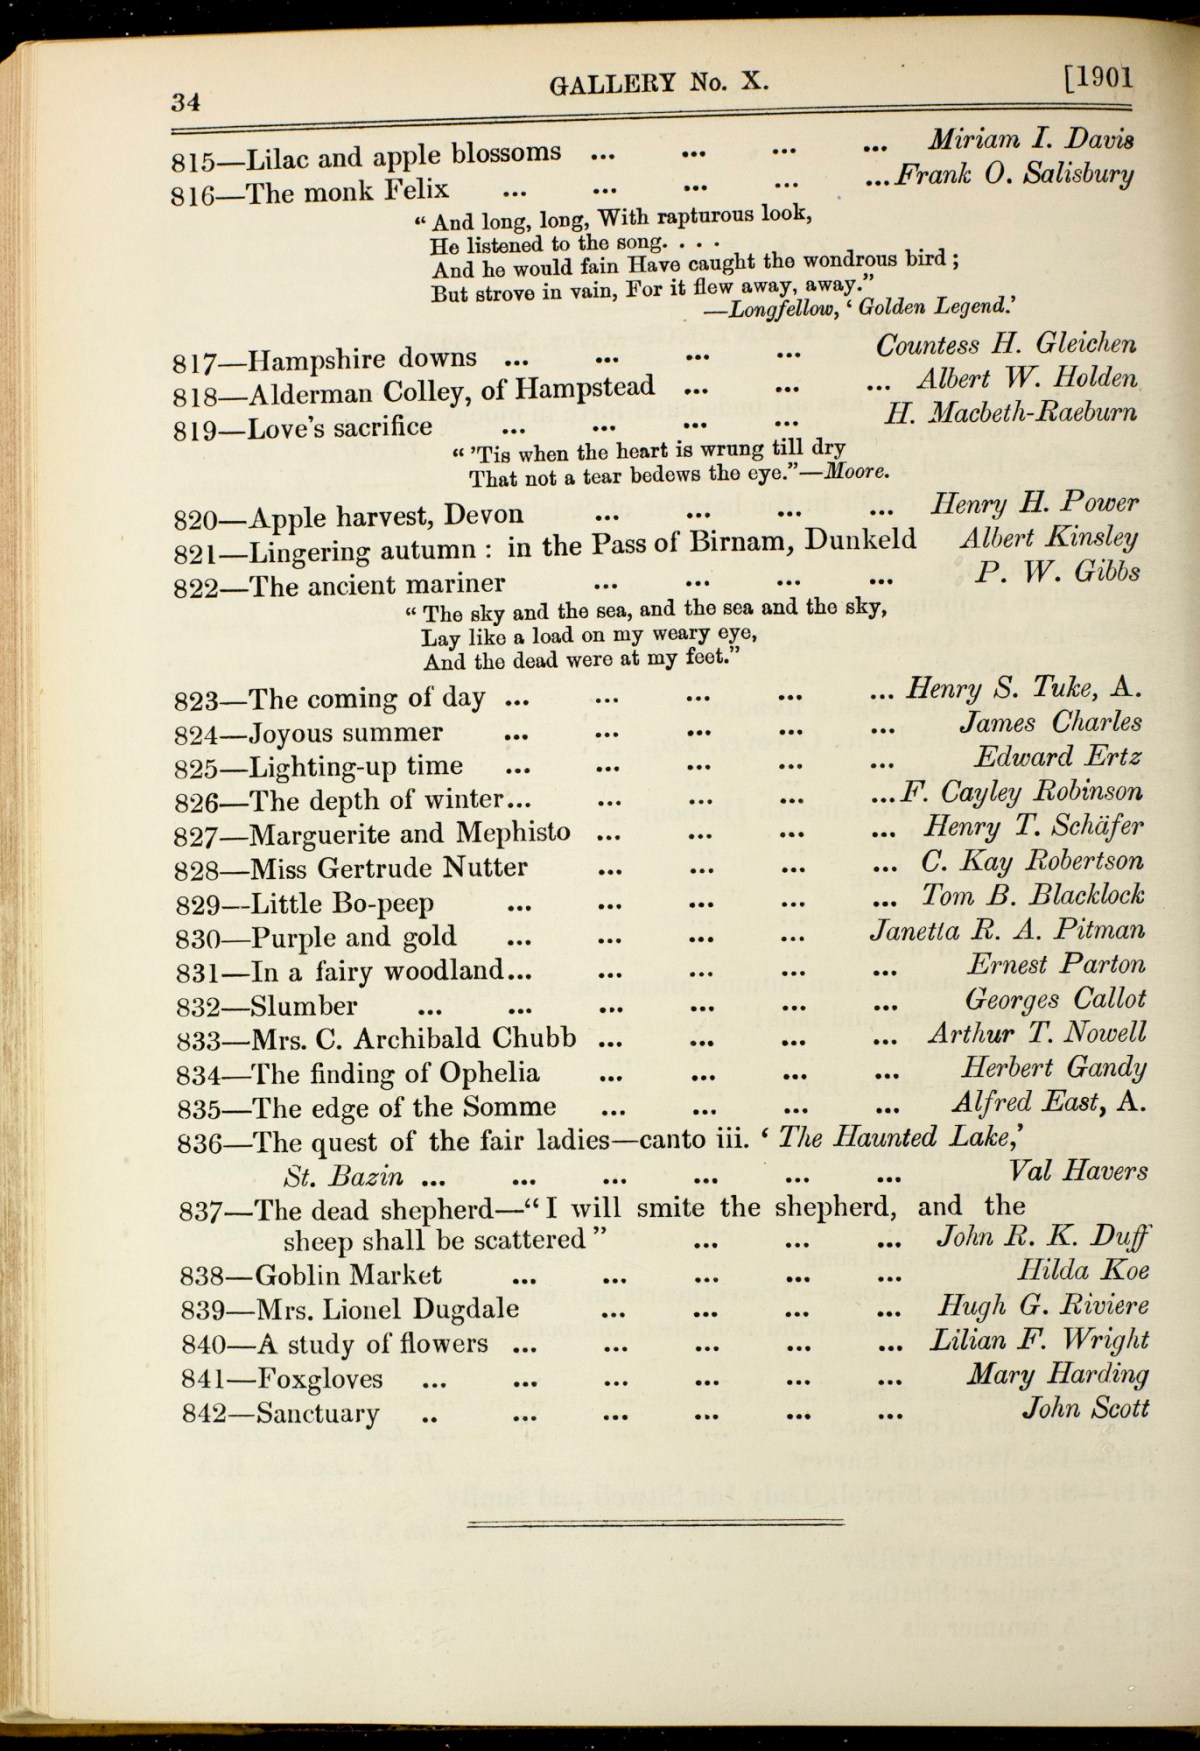 34 GALLERY No. X. [1901
815—Lilac and apple blossoms ... ... ... ... Miriam I. Davis
816—The monk Felix ... ... ... ... ...Frank O. Salisbury
“ And long, long, With rapturous look,
He listened to the song. . . .
And he would fain Have caught the wondrous bird ;
But strove in vain, For it flew away, away.”
—Longfellow, ‘ Golden Legend.’
817—Hampshire downs ... ... ... ... Countess H. Gleichen
818—Alderman Colley, of Hampstead ... ... ... Albert W. Holden
819—Love’s sacrifice ... ... ... ... H. Macbeth-Raeburn
“ ’Tis when the heart is wrung till dry
That not a tear bedews the eye.”—Moore.
820—Apple harvest, Devon ... ... ... ... Henry H. Power
821—Lingering autumn : in the Pass of Birnam, Dunkeld Albert Kinsley
822—The ancient mariner ... ... ... ... P. W. Gibbs
“ The sky and the sea, and the sea and the sky,
Lay like a load on my weary eye,
And the dead were at my feet.”
823—The coming of day ... ... ... ... ... Henry S. Tuke, A.
824—Joyous summer ... ... ... ... ... James Charles
825—Lighting-up time ... ... ... ... ... Edward Ertz
826—The depth of winter... ... ... ... ...F. Cayley Robinson
827—Marguerite and Mephisto ... ... ... ... Henry T. Schäfer
828—Miss Gertrude Nutter ... ... ... ... C. Kay Robertson
829—Little Bo-peep ... ... ... ... ... Tom B. Blacklock
830—Purple and gold ... ... ... ... Janetta R. A. Pitman
831—In a fairy woodland... ... ... ... ... Ernest Parton
832—Slumber ... ... ... ... ... ... Georges Callot
833—Mrs. C. Archibald Chubb ... ... ... ... Arthur T. Nowell
834—The finding of Ophelia ... ... ... ... Herbert Gandy
835—The edge of the Somme ... ... ... ... Alfred East, A.
836—The quest of the fair ladies—canto iii. ‘ The Haunted Lake,’
St. Bazin ... ... ... ... ... ... Val Havers
837—The dead shepherd—“ I will smite the shepherd, and the
sheep shall be scattered ” ... ... ... John R. K. Duff
838—Goblin Market ... ... ... ... ... Hilda Koe
839—Mrs. Lionel Dugdale ... ... ... ... Hugh G. Riviere
840—A study of flowers ... ... ... ... ... Lilian F. Wright
841—Foxgloves ... ... ... ... ... ... Mary Harding
842—Sanctuary .. ... ... ... ... ... John Scott